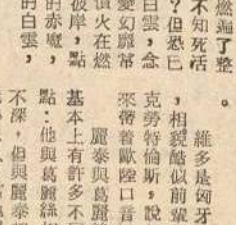 燃遍了整
不知死活
？但恐已
白雲，念
變幻靡常
火在燃
彼岸，點
的赤
的白雲，
。
維多是匈牙
，相貌酷似前輩
克勞特倫斯，說
來帶着歐陸口音
麗泰與葛麗
基本上有許多不
點：他與葛麗絲
不深，但與麗泰